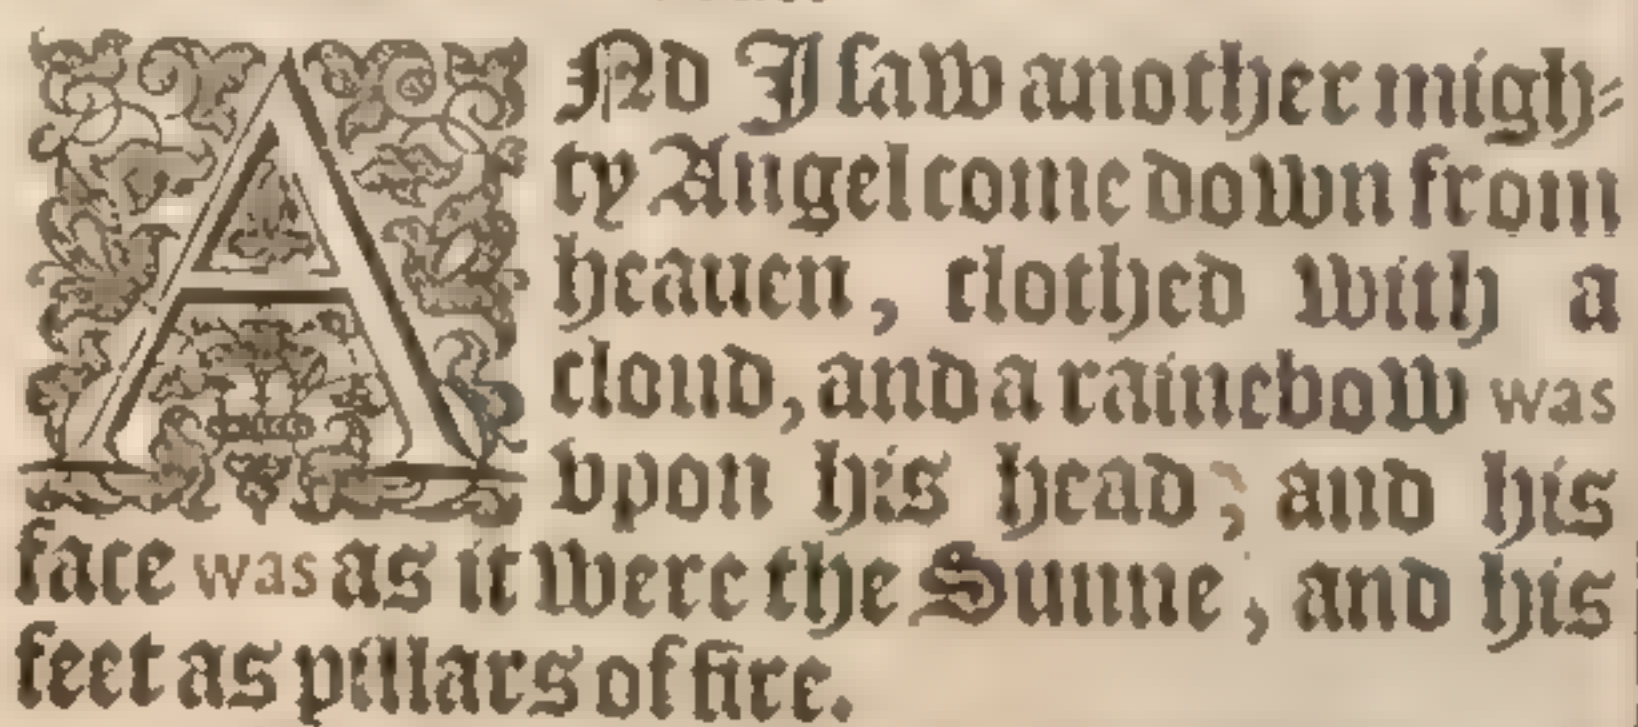 ANd I saw another migh-
ty Angel come down from
heauen, clothed with a
cloud, and a rainebow was
vpon his head, and his
face was as it were the Sunne, and his
feet as pillars of fire.